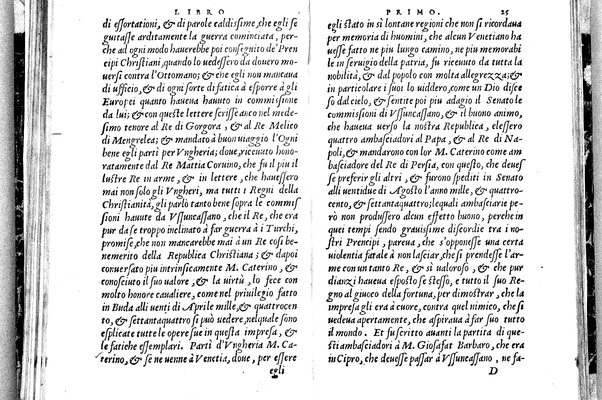 LIBRO
di essortationi, & di parole caldissime, che egli se
guitasse arditamente la guerra cominciata, perche
che ad ogni modo hauerebbe poi conseguito de' Pren
cipi Christiani, quando lo uedessero da douero mo-
uersi contra l'Ottomano; & che egli non mancaua
di ufficio, & di ogni sorte di fatica è sporre à gli
Europei quanto haueua hauuto in commissione
da lui; & con queste lettere scrisse anco nel mede-
simo tenore al Re di Gorgora, & al Re Melico
di Mengrelea; & mandato à buon uiaggio l'Ogni
bene egli partì per Vngheria; doue, riceuuto honorata
mente dal Re Mattia Coruino, che fu il piu il
lustre Re in arme, & in lettere, che hauessero
mai non solo gli Vngheri, ma tutti i Regni della
Christianità, gli parlò tanto bene sopra le commis
sioni hauute da Vssuncassano, che il Re, che era
pur da se troppo inclinato à far guerra à i Turchi,
promise, che non mancarebbe mai à un Re cosi be-
nemerito della Republica Christiana; & dapoi
conuersato piu intrinsicamente M. Caterino, &
conosciuto il suo ualore, & la uirtù, lo fece con
molto honore caualiere, come nel priuilegio fatto
in Buda alli uenti di Aprile mille, & quattrocen
to, & settantaquattro si può uedere, nel quale sono
esplicate tutte le opere sue in questa impresa, &
le fatiche essemplari. Partì d'Vngheria M. Ca-
terino, & se ne uenne à Venetia, doue, per essere
egli
PRIMO. 25
egli stato in sì lontane regioni che non si ricordaua
per memoria di huomini, che alcun Venetiano ha
uesse fatto ne piu lungo camino, ne piu memorabi
le in seruigio della patria, fu riceuuto da tutta la
nobilità, & dal popolo con molta allegrezza; & in
particolare i suoi lo uiddero, come un Dio disce
so dal cielo, & sentite poi piu adagio il Senato le
commissioni di Vssuncassano, & il buono animo,
che haueua uerso la nostra Republica, elessero
quattro ambasciatori al Papa, & al Re di Na-
poli, & mandarono con lor M. Caterino come am
basciadore del Re di Persia, con questo, che deues
se preferire gli altri, & furono spediti in Senato
alli uentidue di Agosto l'anno mille, & quattro-
cento, & settantaquattro; lequali ambasciarie pe-
rò non produssero alcun effetto buono, perche in
quei tempi sendo grauissime discordie tra i no
stri Prencipi, pareua, che s'opponesse una certa
violentia fatale à non lasciar, che si prendesse l'ar
me contra un tanto Re, & sì ualoroso, & che pur
dianzi haueua esposto se stesso, e tutto il suo Re-
gno al giuoco della fortuna, per dimostrar, che la
impresa gli era à cuore, contra quel nimico, che si
uedeua apertamente, che aspiraua à far suo tutto
il mondo. Et fu scritto auanti la partita di que-
sti ambasciadori à M. Giosafat Barbaro, che era
in Cipro, che deuesse passar à Vssuncassano, ne fa-
D